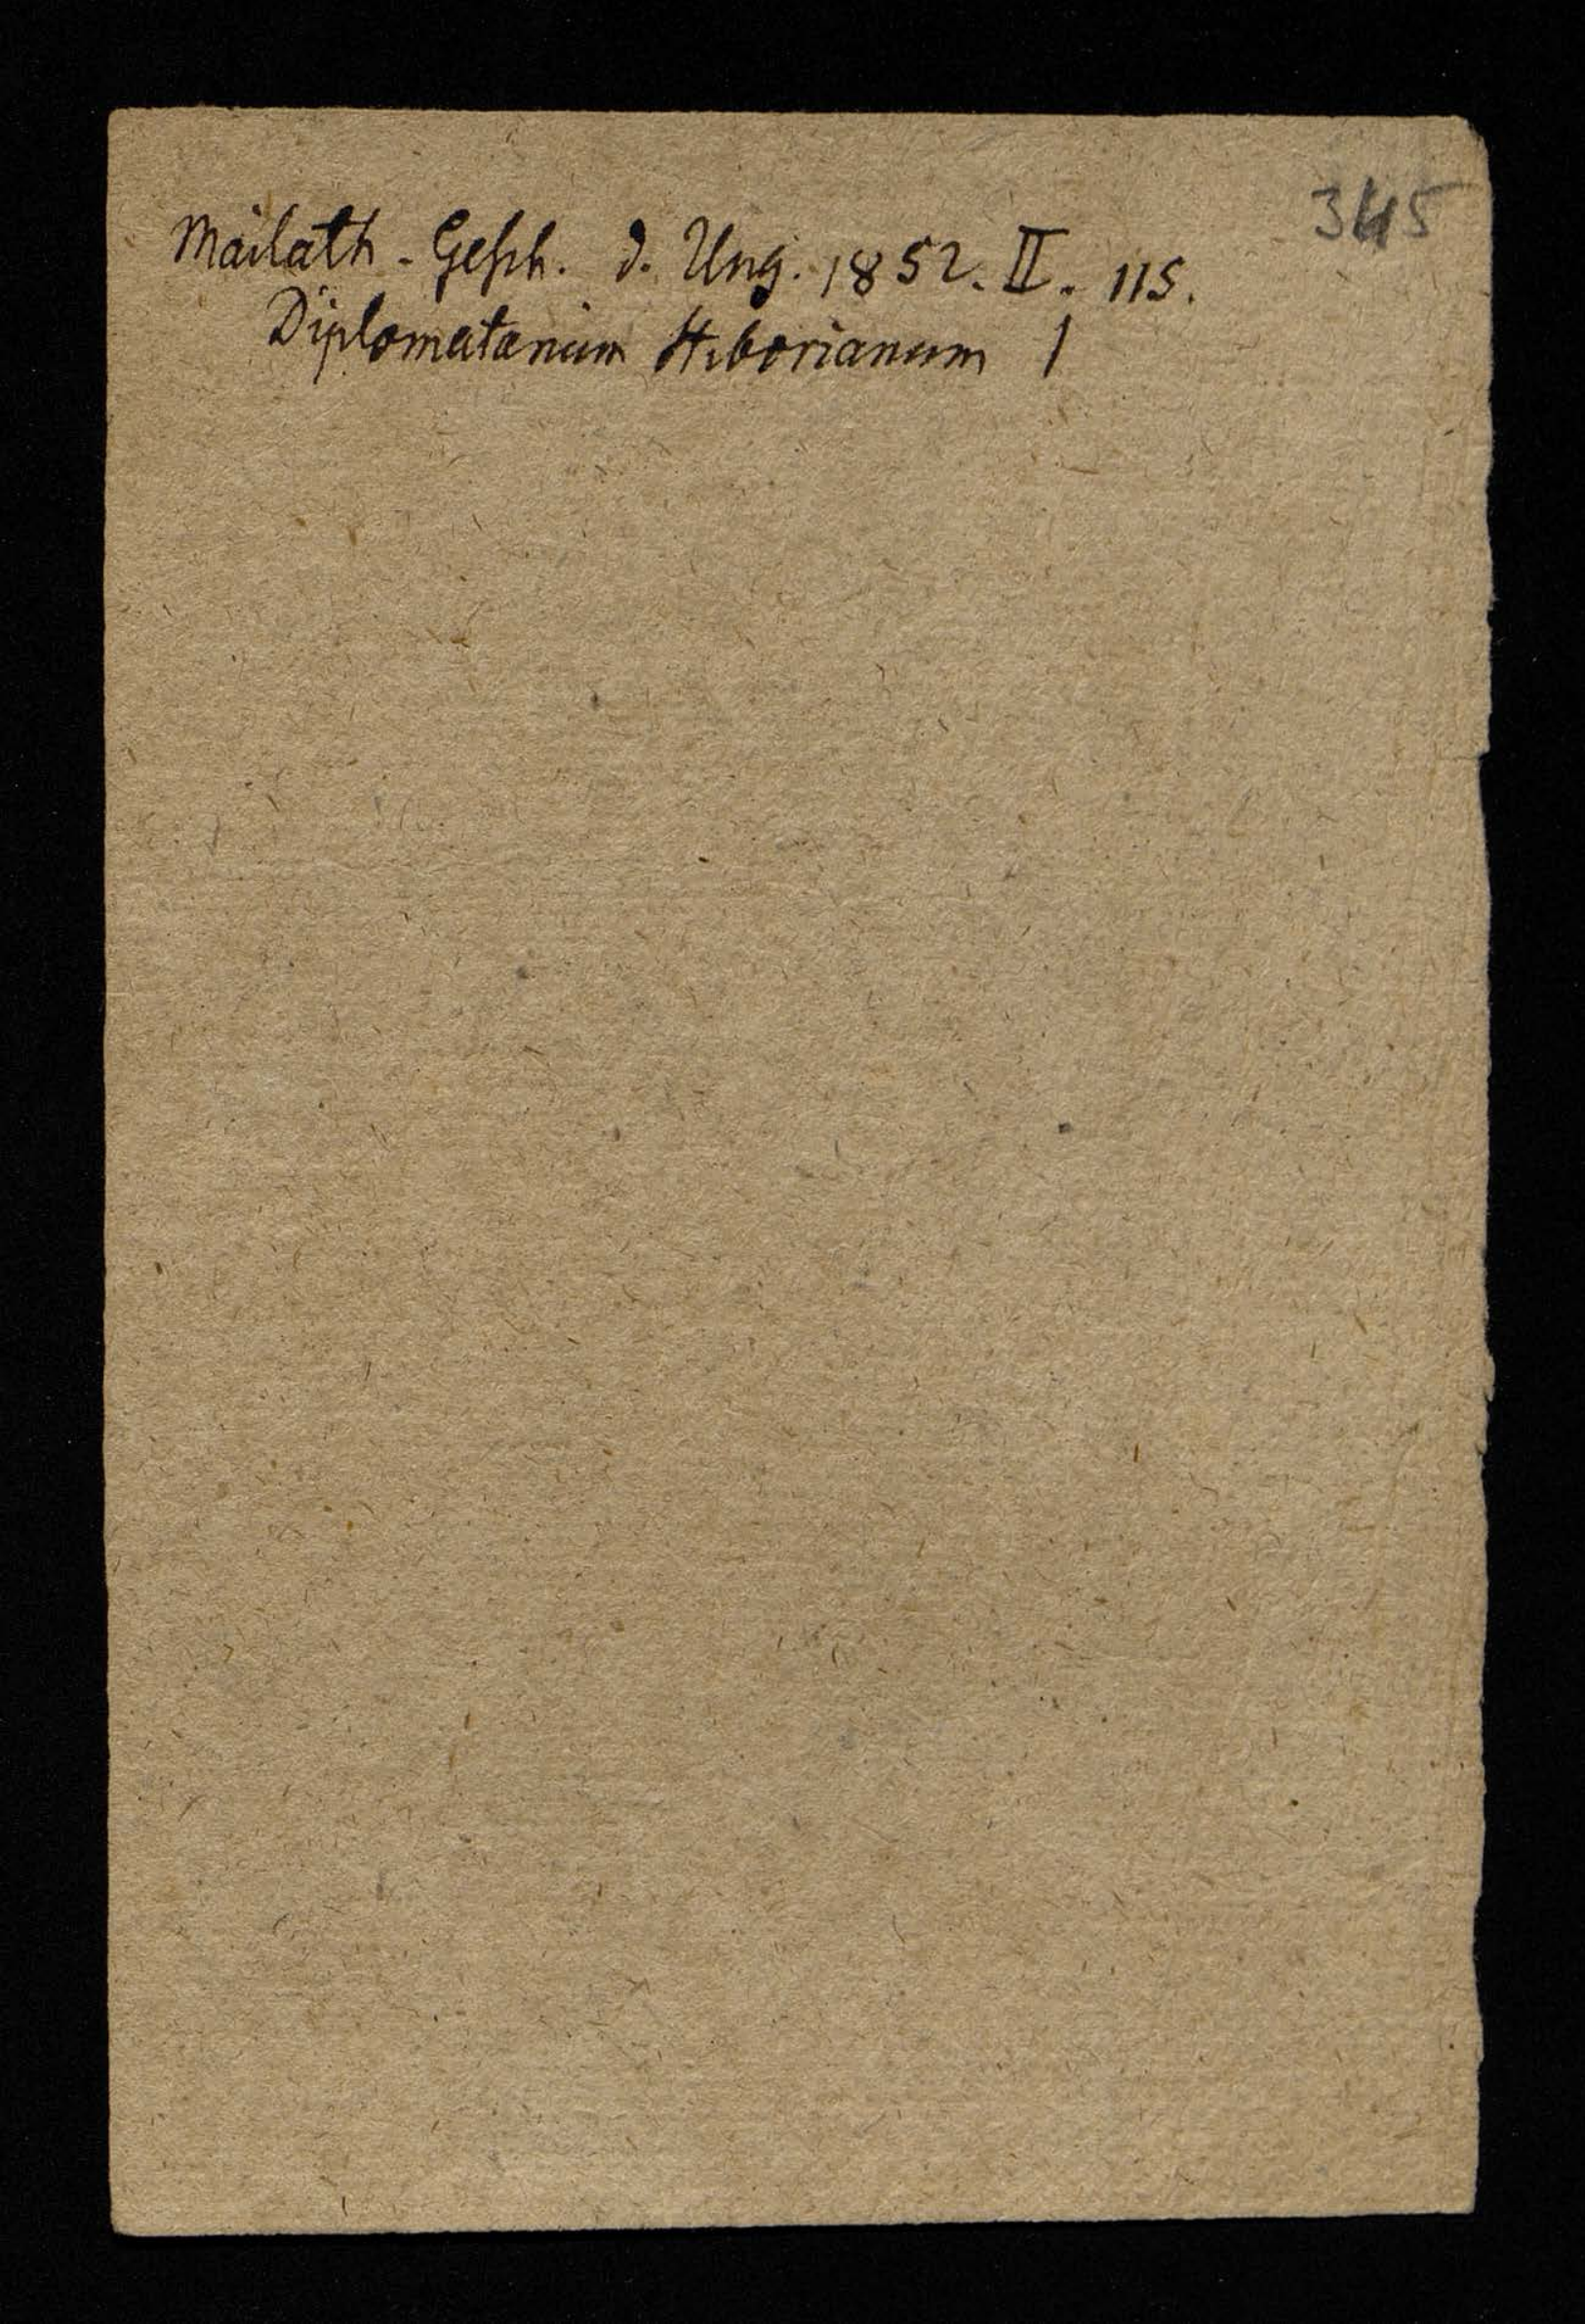 345
Mailath - Gesch. d. Ung. 1852. II. 115.
Diplomatarium Stiborianum !